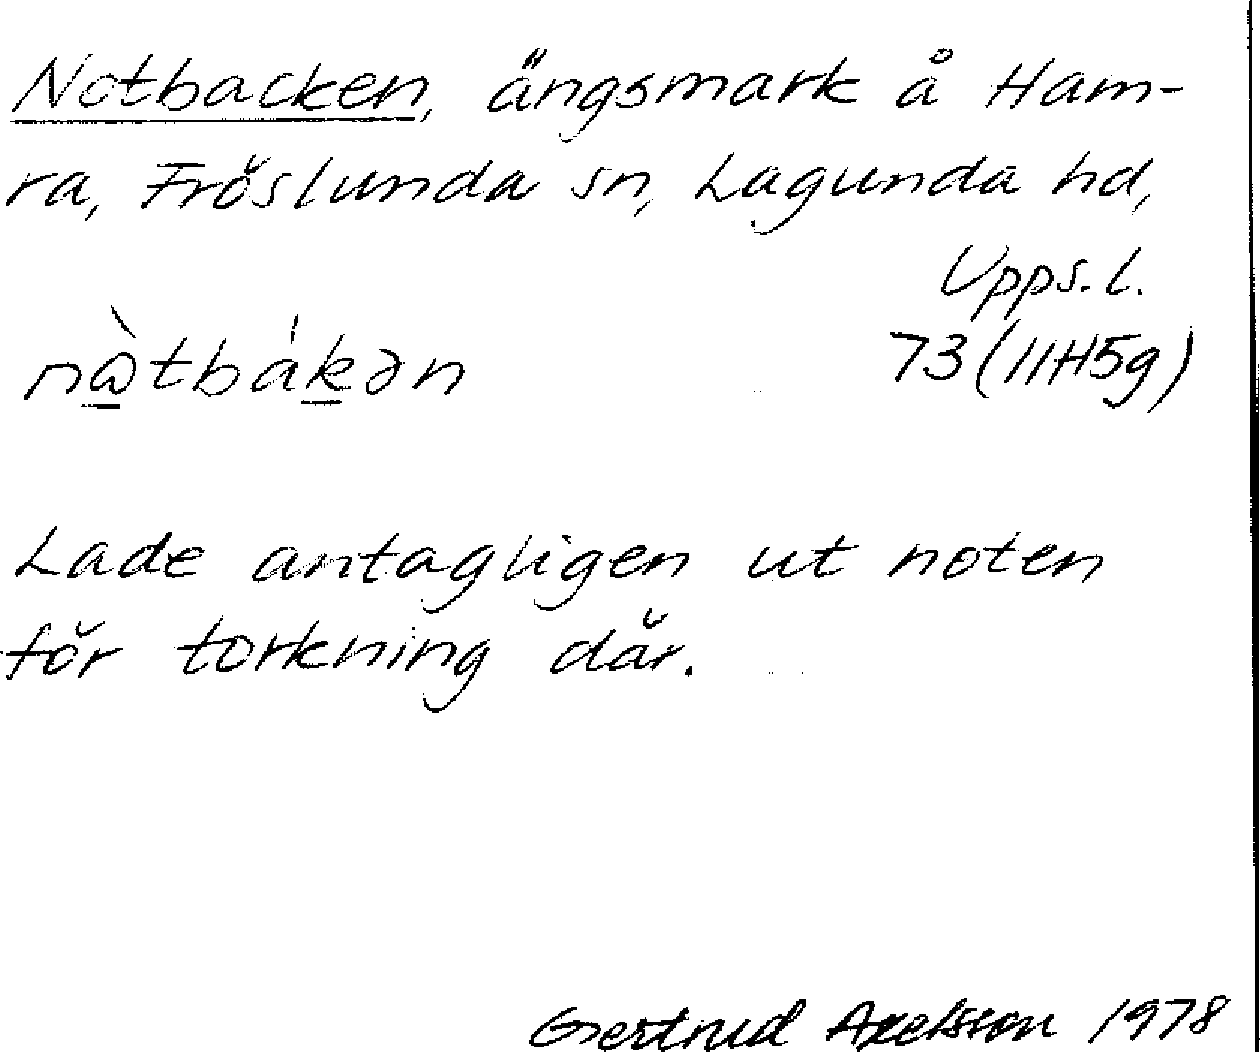 Notbacken, ängsmark å Ham-
ra, Fröslunda sn, Lagunda hd,
Upps. l.
73 (11H5g)
Lade antagligen ut noten
för torkning där.
Gertrud Axelsson 1978